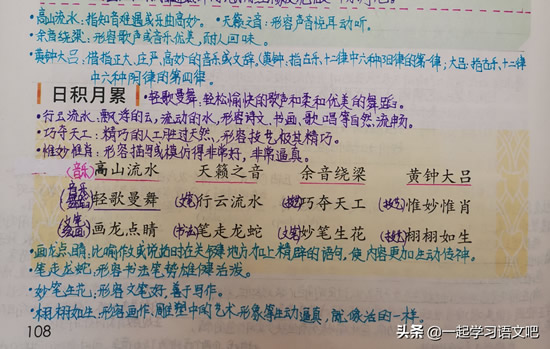 •高山流水:指知音难遇或乐曲高妙。 •天籁之音:形容声音悦耳动听。
•余音绕梁:形容歌声或音乐优美,耐人回味。
•黄钟大吕:借指正大、庄严、高妙的音乐或文辞。(黄钟:指古乐、十二律中六种阳律的第一律;大吕:指古乐、十二律
中六种阴律的第四律。
日积月累 •轻歌曼舞:轻松愉快的歌声和柔和优美的舞蹈。
•行云流水:飘浮的云,流动的水,形容诗文、书画、歌唱等自然、流畅。
•巧夺天工:精巧的人工胜过天然,形容技艺极其精巧。
•惟妙惟肖:形容描写或模仿得非常好,非常逼真。
(音乐)高山流水 天籁之音 余音绕梁 黄钟大吕
轻歌曼舞 行云流水 巧夺天工 惟妙惟肖
画龙点睛 笔走龙蛇 妙笔生花 栩栩如生
•画龙点睛:比喻作文或说话时在关键地方加上精辟的语句,使内容更加生动传神。
•笔走龙蛇:形容书法笔势雄健活泼。
•妙笔生花:形容文笔好,善于写作。
•栩栩如生:形容画作、雕塑中的艺术形象等生动逼真,就像活的一样。
108
头条 @一起学习语文吧